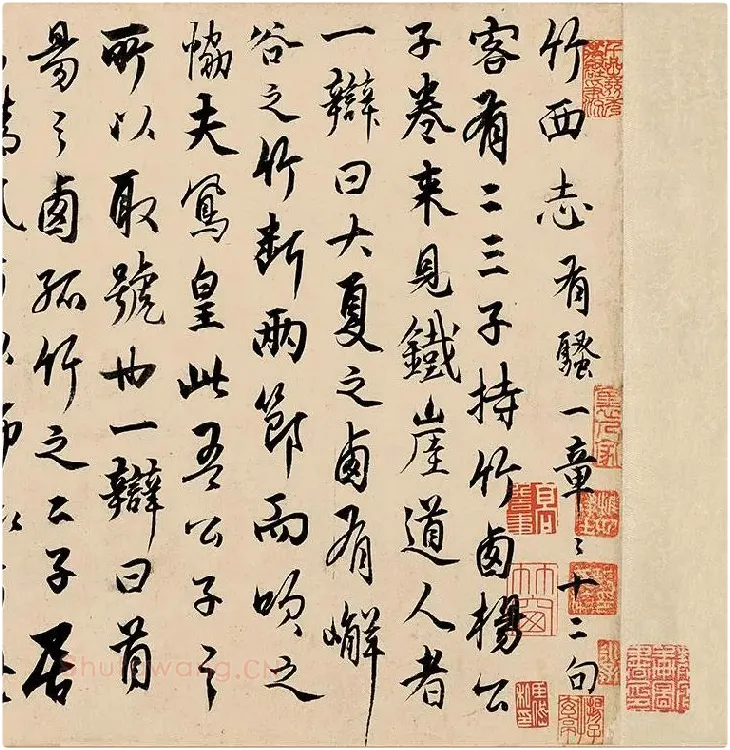 竹西志有騷一章〻十二句
客有二三子持竹卥楊公
子卷来見鐵崖道人者
一辯曰大夏之卥有嶰
谷之竹斷兩節而吹之
恊夫鳳皇此吾公子之
所以取號也一辯曰首
昜之卥孤竹之二子居
Shufawang.CN